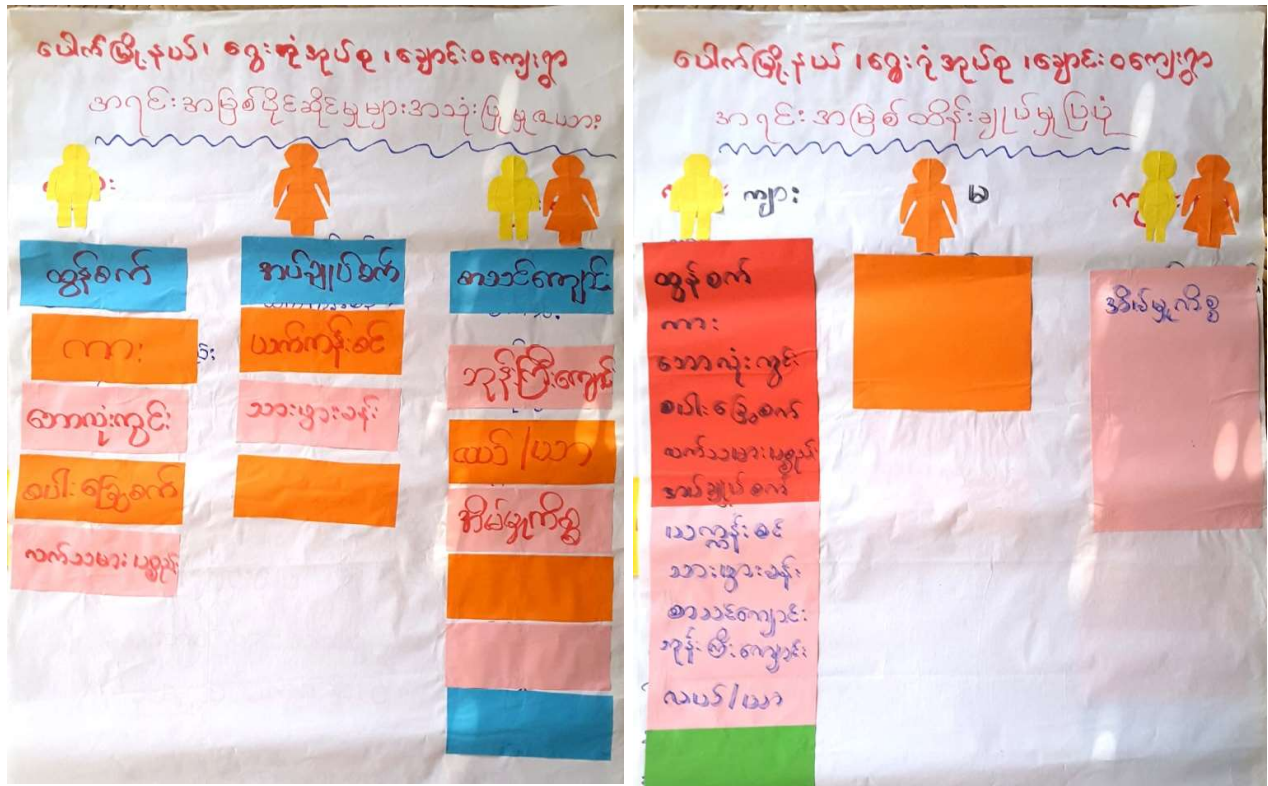 ပေါက်မြို့နယ်၊ ရွေးကုံအုပ်စု ၊ချောင်းဝကျေးရွာ
အရင်းအမြစ်ပိုင်ဆိုင်မှုများအသုံးပြုမှုဇယား
ထွန်စက်
ကား
ဘောလုံးကွင်း
စပါးခြွေစက်
လက်သမားပစ္စည်း
အပ်ချုပ်စက်
ယက်ကန်းစင်
သားဖွားခန်း
စာသင်ကျောင်း
ဘုန်းကြီးကျောင်း
လယ်/ယာ
အိမ်မှုကိစ္စ
ပေါက်မြို့နယ် ၊ရွေးကုံအုပ်စု ၊ချောင်းဝကျေးရွာ
အရင်းအမြစ်ထိန်းချုပ်မှုပြပုံ
ကျား
မ
ထွန်စက်
ကား
ဘောလုံးကွင်း
စပါးခြွေစက်
လက်သမားပစ္စည်း
အပ်ချုပ်စက်
ယက္ကန်းစင်
သားဖွားခန်း
စာသင်ကျောင်း
ဘုန်းကြီးကျောင်း
လယ်/ယာ
အိမ်မှုကိစ္စ